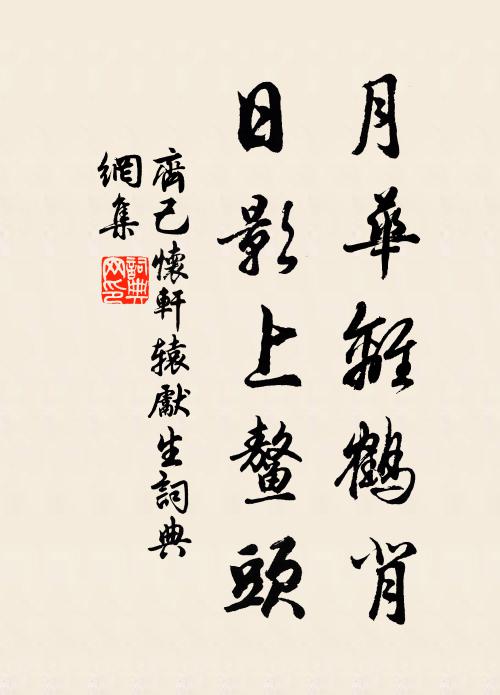 月華離鶴背
日影上鰲頭
齊己懷軒辕獻生詞典
網集
詞典網印